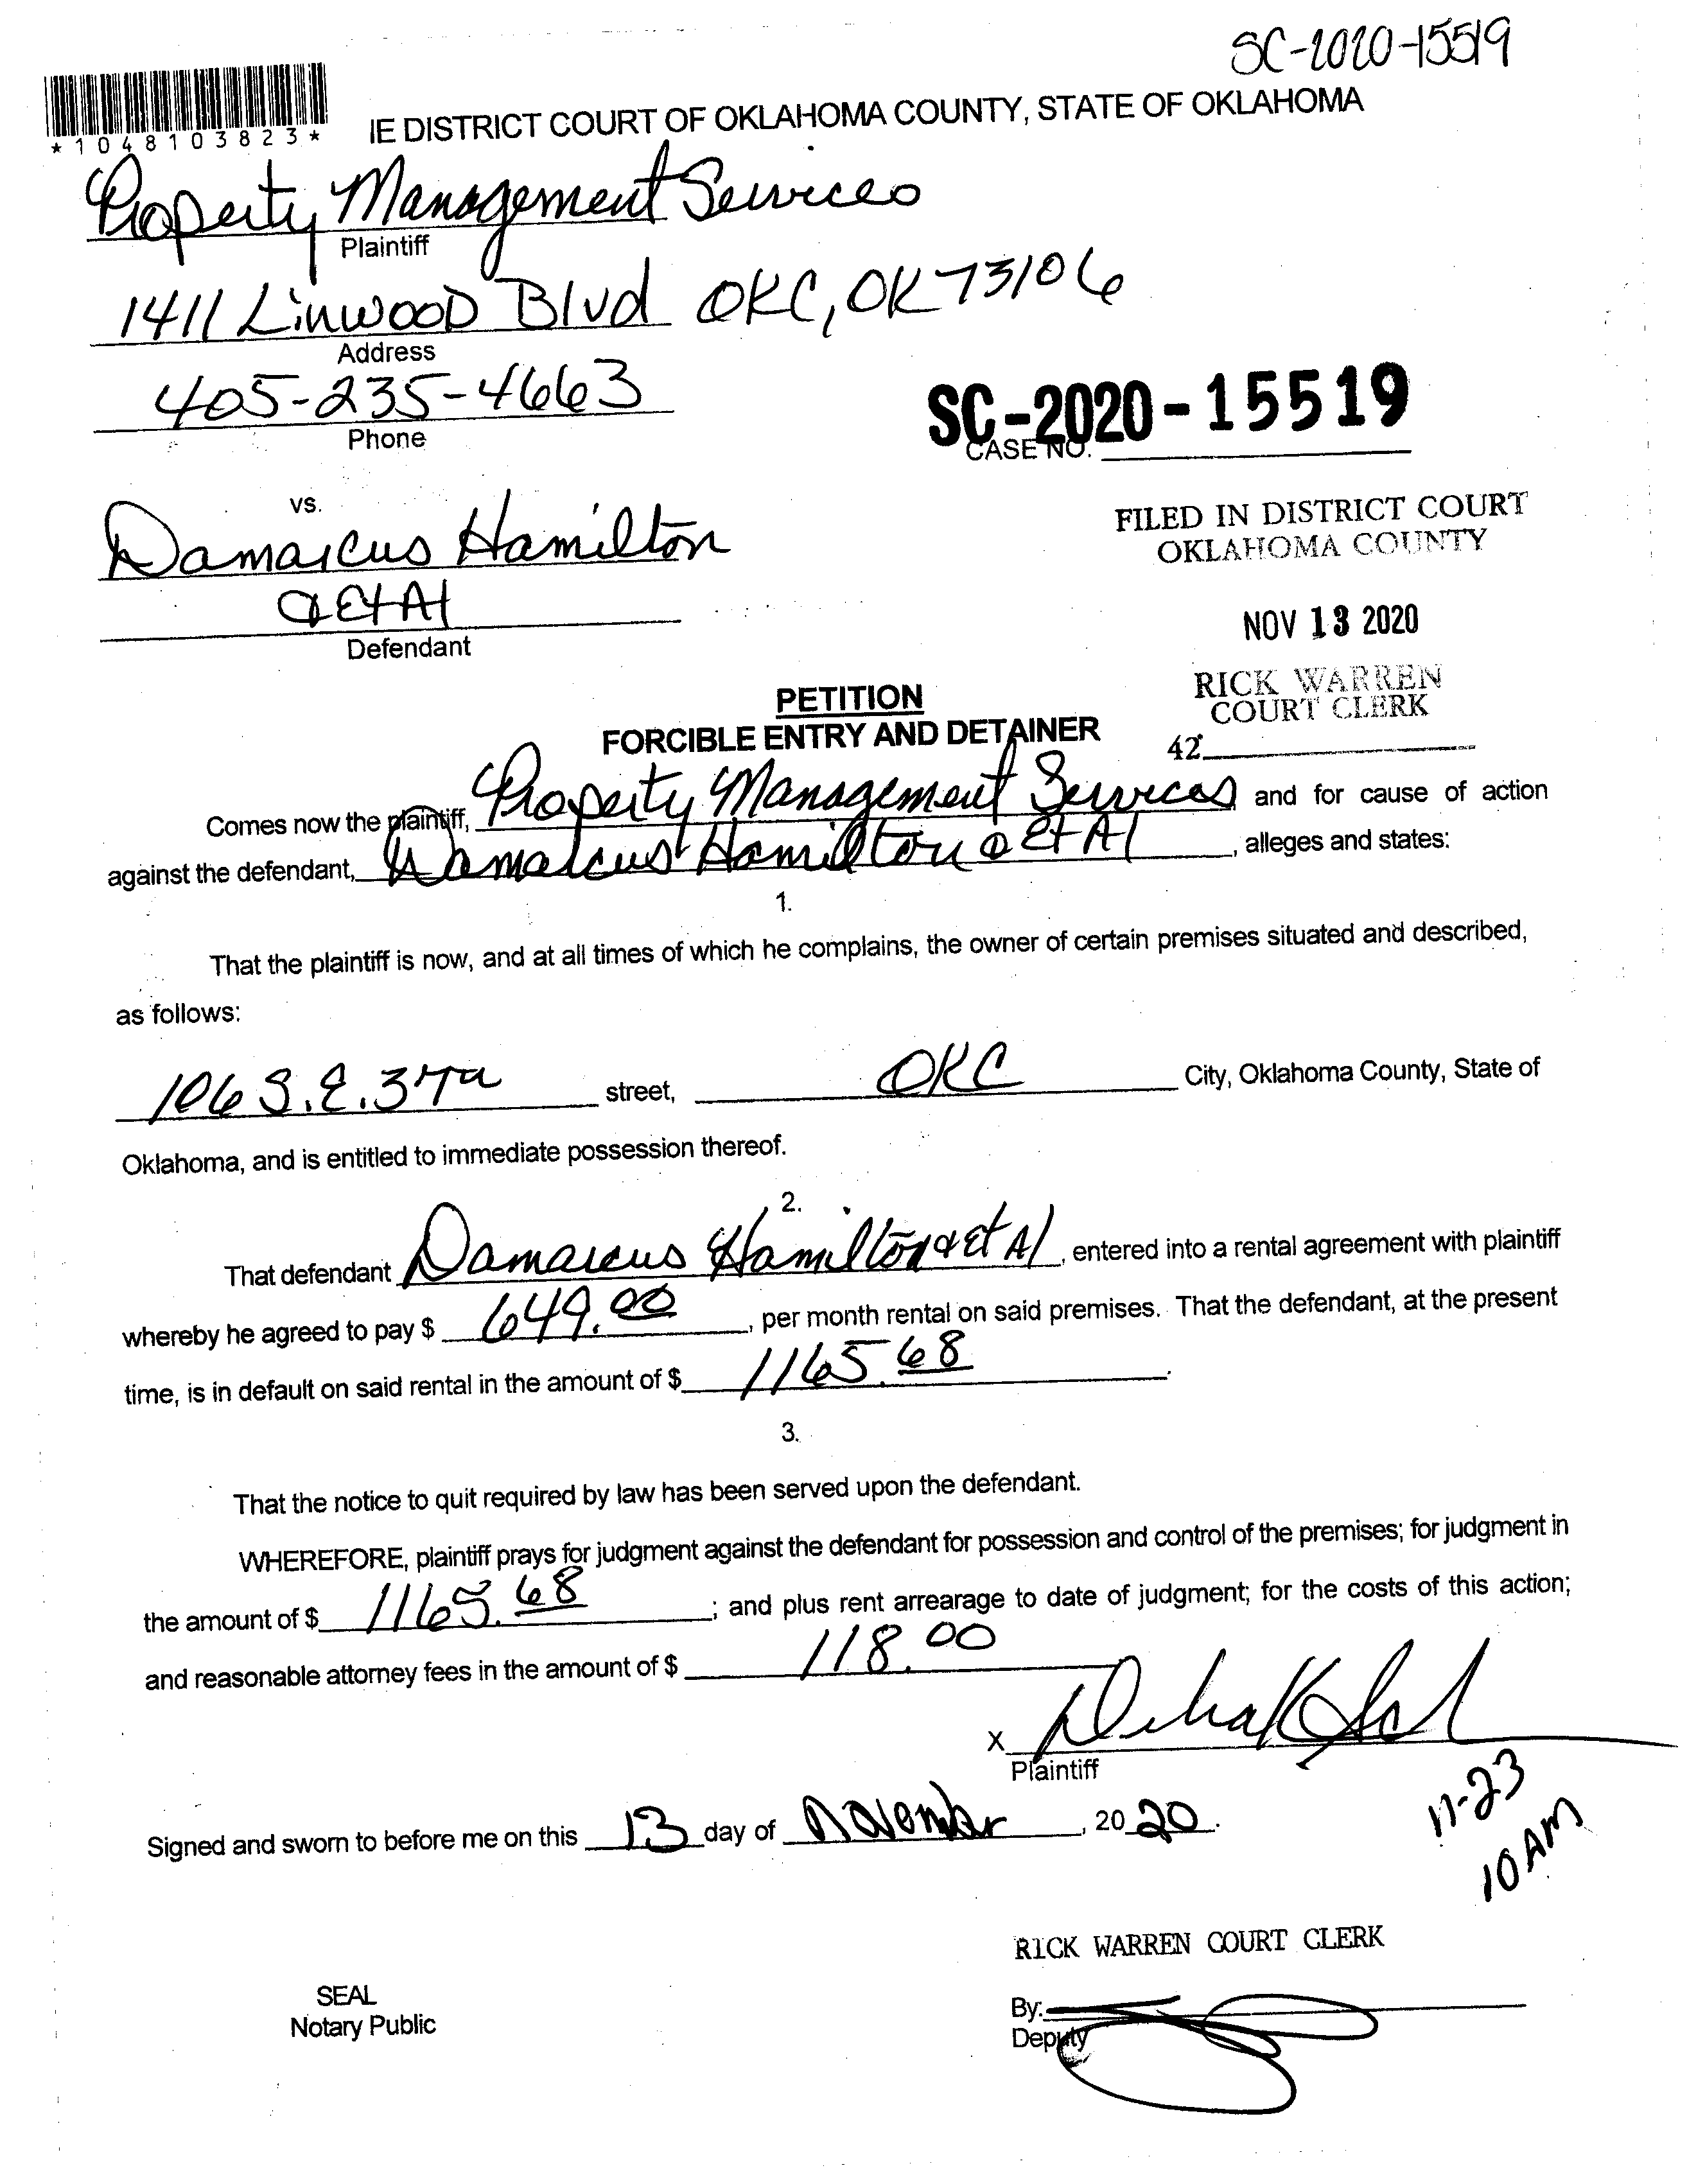 SC-2020-15519
*1048103823*
IE DISTRICT COURT OF OKLAHOMA COUNTY, STATE OF OKLAHOMA
Property Management Services
Plaintiff
1411 Linwood Blvd OKC, OK 73106
Address
405-235-4663
Phone
SC-2020-15519
CASE NO.
vs.
Damarcus Hamilton
& Et Al
Defendant
FILED IN DISTRICT COURT
OKLAHOMA COUNTY
NOV 13 2020
RICK WARREN
COURT CLERK
42
PETITION
FORCIBLE ENTRY AND DETAINER
Comes now the plaintiff, Property Management Services and for cause of action
against the defendant, Damarcus Hamilton & Et Al, alleges and states:
1.
That the plaintiff is now, and at all times of which he complains, the owner of certain premises situated and described,
as follows:
106 S.E. 37th street, OKC City, Oklahoma County, State of
Oklahoma, and is entitled to immediate possession thereof.
2.
That defendant Damarcus Hamilton & Et Al, entered into a rental agreement with plaintiff
whereby he agreed to pay $ 649.00, per month rental on said premises. That the defendant, at the present
time, is in default on said rental in the amount of $ 1165.68.
3.
That the notice to quit required by law has been served upon the defendant.
WHEREFORE, plaintiff prays for judgment against the defendant for possession and control of the premises; for judgment in
the amount of $ 1165.68; and plus rent arrearage to date of judgment; for the costs of this action;
and reasonable attorney fees in the amount of $ 118.00
X
Plaintiff
Signed and sworn to before me on this 13 day of November, 2020.
11-23
10 AM
RICK WARREN COURT CLERK
SEAL
Notary Public
By:
Deputy